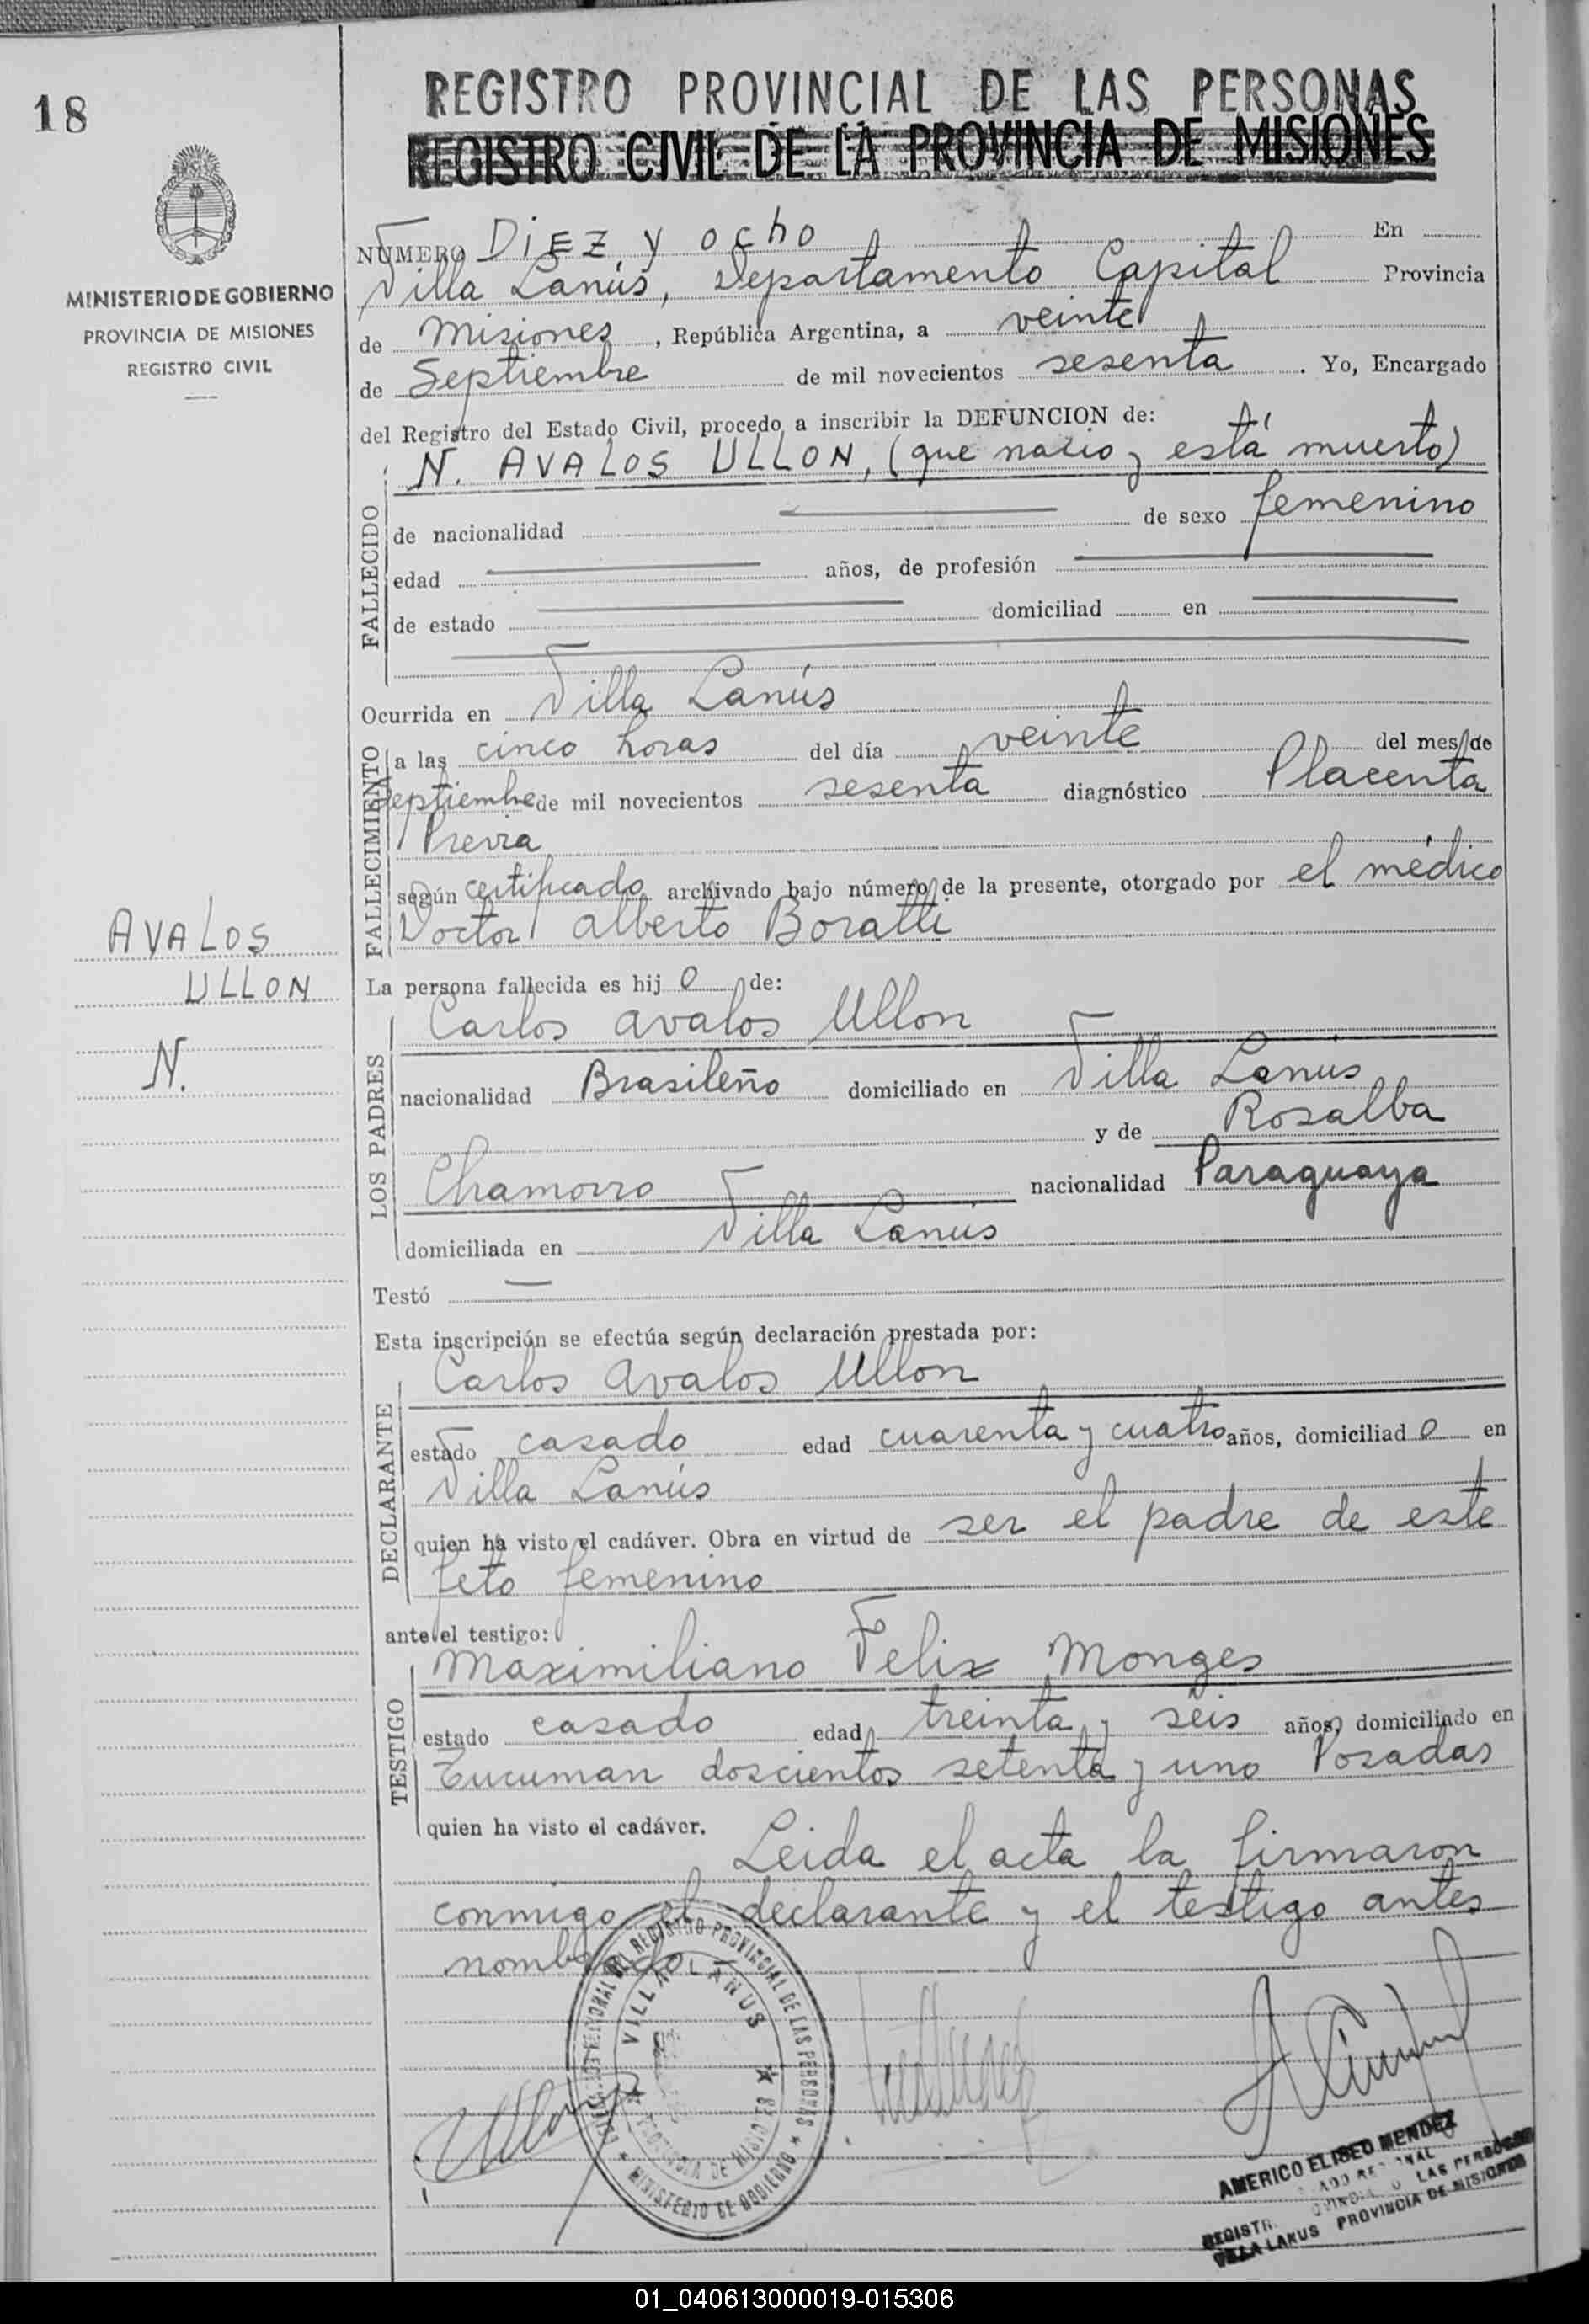 18
REGISTRO PROVINCIAL DE LAS PERSONAS
REGISTRO CIVIL DE LA PROVINCIA DE MISIONES
MINISTERIO DE GOBIERNO
PROVINCIA DE MISIONES
REGISTRO CIVIL
NUMERO Diez y ocho En
Villa Lanús, Departamento Capital Provincia
de Misiones, República Argentina, a veinte
de Septiembre de mil novecientos sesenta. Yo, Encargado
del Registro del Estado Civil, procedo a inscribir la DEFUNCION de:
N. AVALOS ULLON, (que nacio y está muerto)
FALLECIDO
de nacionalidad de sexo femenino
edad años, de profesión
de estado domiciliad en
Ocurrida en Villa Lanús
FALLECIMIENTO
a las cinco horas del día veinte del mes de
Septiembre de mil novecientos sesenta diagnóstico Placenta
Previa
según certificado archivado bajo número de la presente, otorgado por el médico
Doctor Alberto Boratti
AVALOS
ULLON
N.
La persona fallecida es hijo de:
LOS PADRES
Carlos Avalos Ullon
nacionalidad Brasileño domiciliado en Villa Lanús
y de Rosalba
Chamorro nacionalidad Paraguaya
domiciliada en Villa Lanús
Testó —
Esta inscripción se efectúa según declaración prestada por:
DECLARANTE
Carlos Avalos Ullon
estado casado edad cuarenta y cuatro años, domiciliado en
Villa Lanús
quien ha visto el cadáver. Obra en virtud de ser el padre de este
feto femenino
ante el testigo:
TESTIGO
Maximiliano Felix Monges
estado casado edad treinta y seis años, domiciliado en
Tucuman doscientos setenta y uno Posadas
quien ha visto el cadáver. Leida el acta la firmaron
conmigo el declarante y el testigo antes
nombrado
REGISTRO PROVINCIAL DE LAS PERSONAS
VILLA LANUS
PROVINCIA DE MISIONES
MINISTERIO DE GOBIERNO
AMERICO ELISEO MENDEZ
LAS PERSONAS
VILLA LANUS PROVINCIA DE MISIONES
01_040613000019-015306